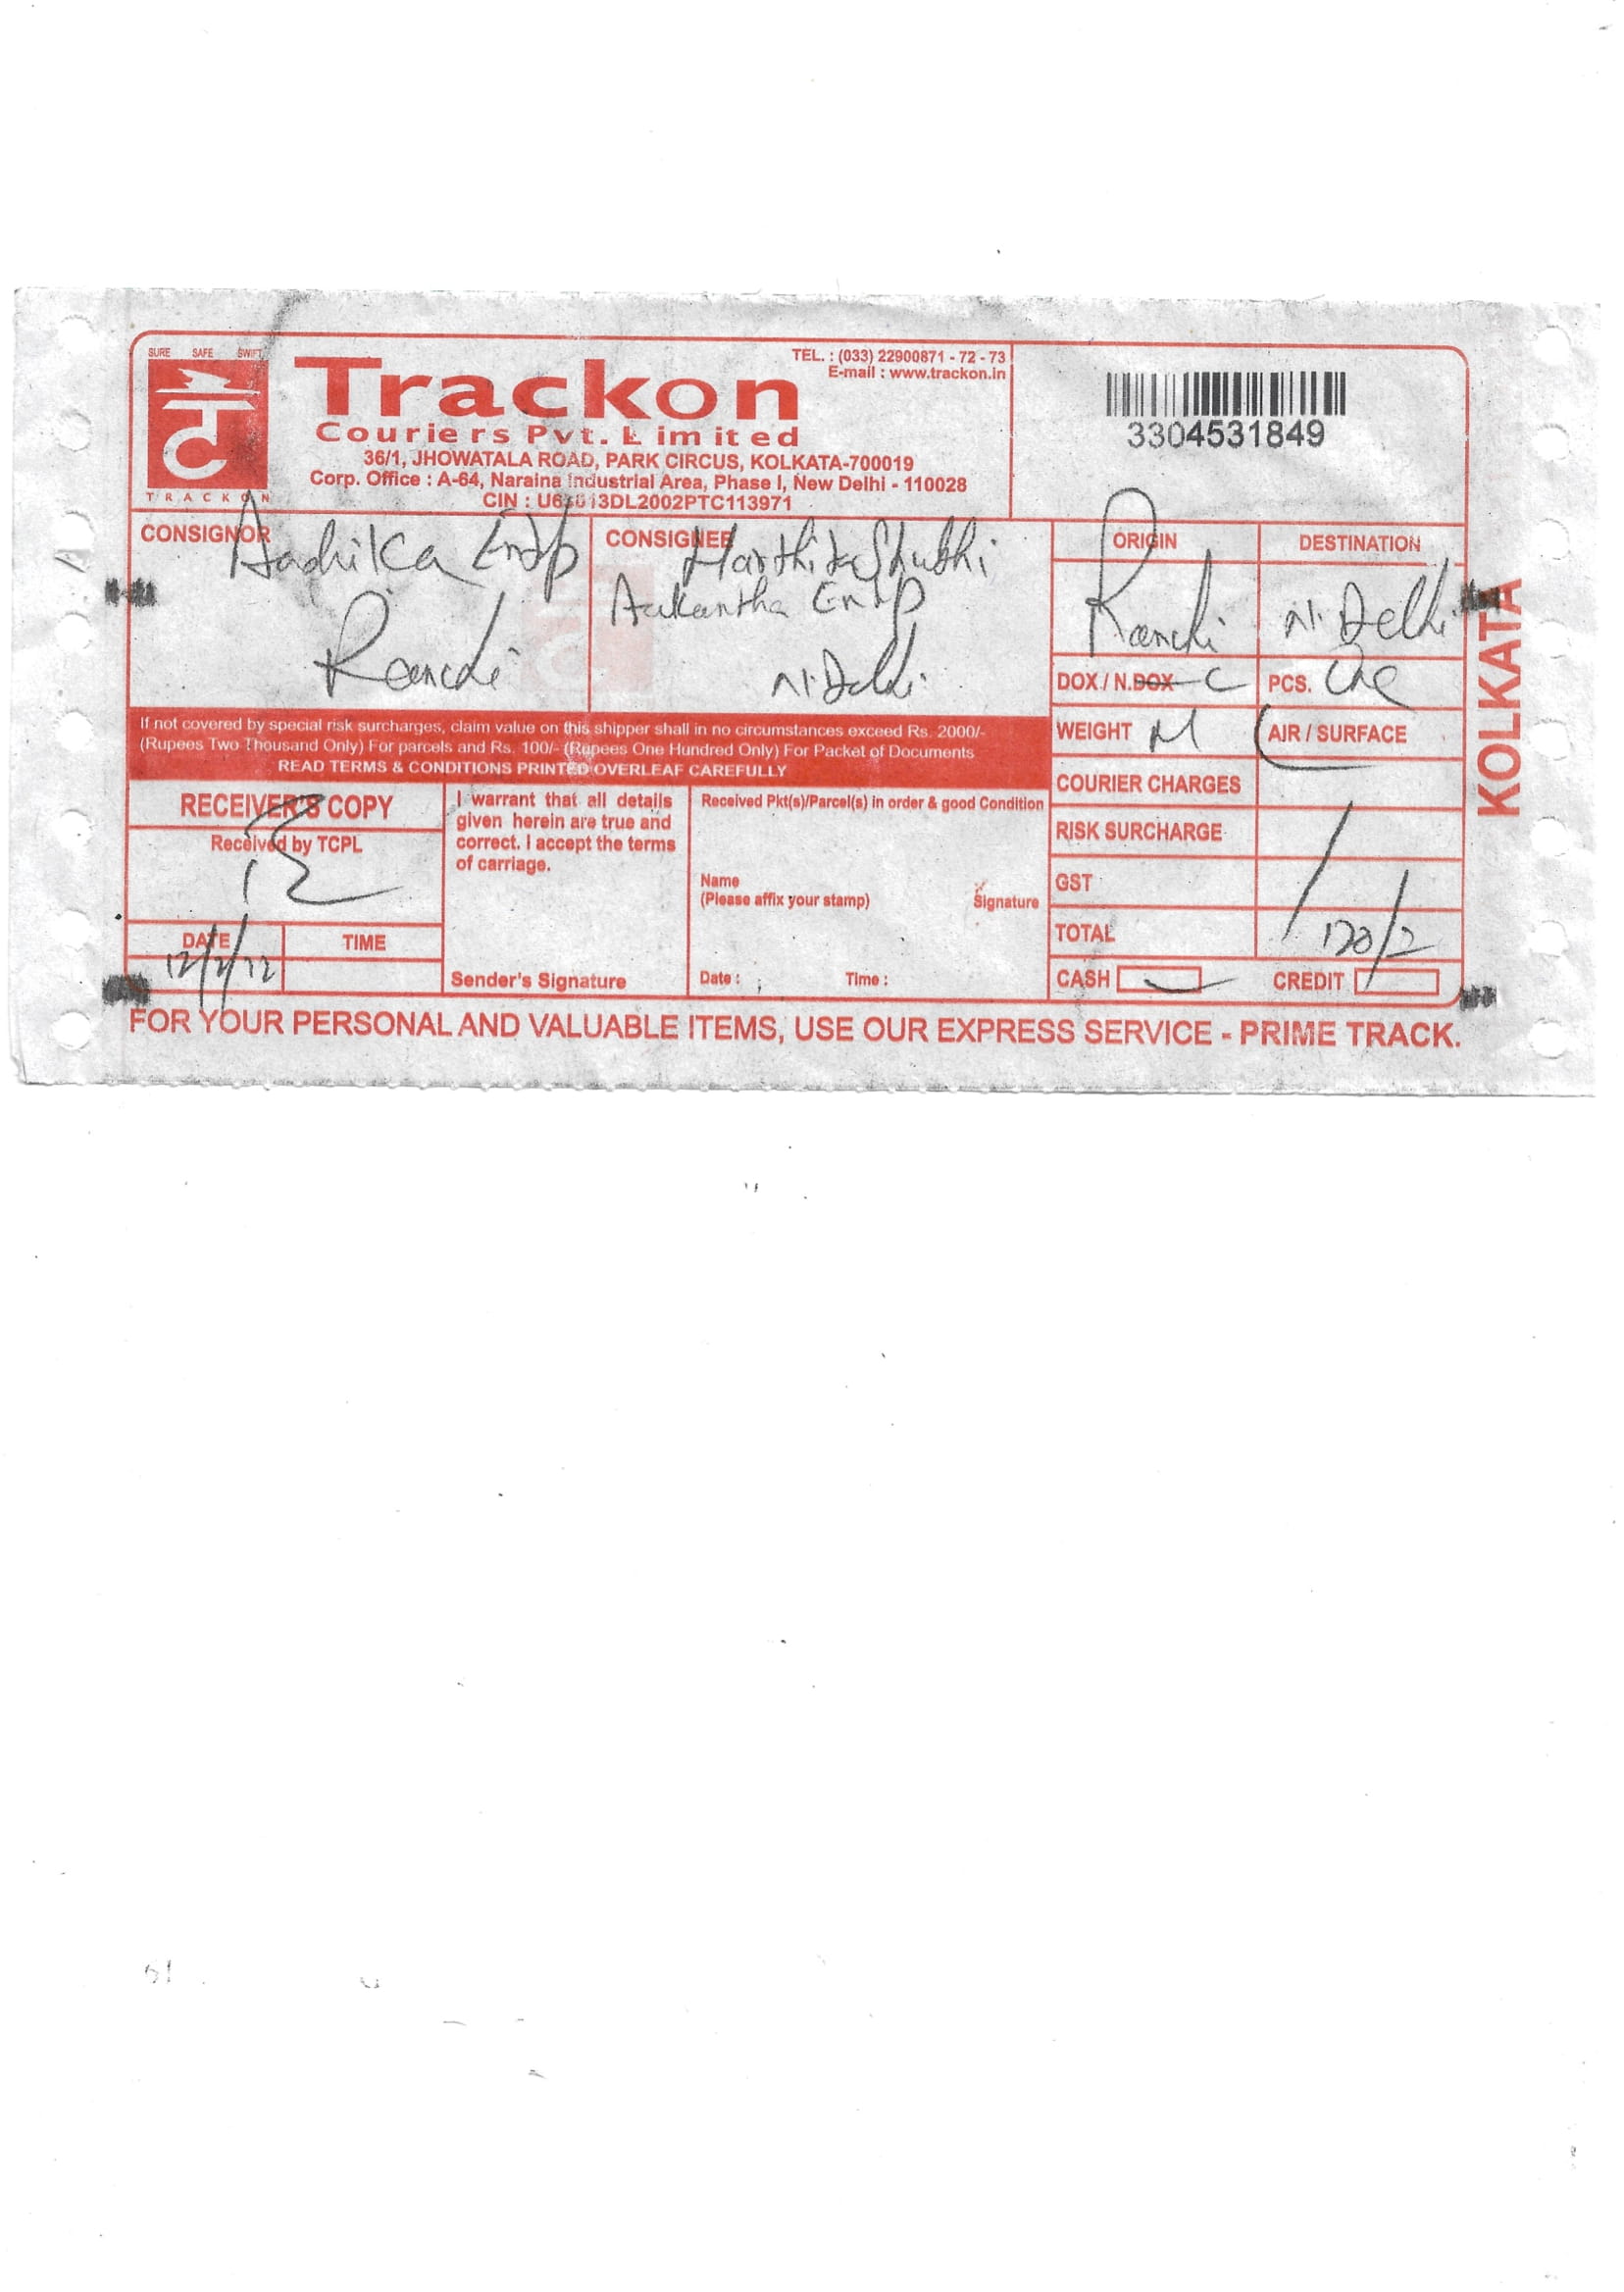 SURE SAFE SWIFT
TRACKON
Trackon
Couriers Pvt. Limited
36/1, JHOWATALA ROAD, PARK CIRCUS, KOLKATA-700019
Corp. Office : A-64, Naraina Industrial Area, Phase I, New Delhi - 110028
CIN :
TEL. : (033) 22900871 - 72 - 73
E-mail : www.trackon.in
3304531849
CONSIGNOR
Ranchi
CONSIGNEE
N. Delhi
ORIGIN
Ranchi
DESTINATION
N. Delhi
DOX / N.DOX
PCS. One
WEIGHT M
AIR / SURFACE
COURIER CHARGES
RISK SURCHARGE
GST
TOTAL
CASH
CREDIT
KOLKATA
If not covered by special risk surcharges, claim value on this shipper shall in no circumstances exceed Rs. 2000/-
(Rupees Two Thousand Only) For parcels and Rs. 100/- (Rupees One Hundred Only) For Packet of Documents
READ TERMS & CONDITIONS PRINTED OVERLEAF CAREFULLY
RECEIVER'S COPY
Received by TCPL
DATE
TIME
I warrant that all details
given herein are true and
correct. I accept the terms
of carriage.
Sender's Signature
Received Pkt(s)/Parcel(s) in order & good Condition
Name
(Please affix your stamp)
Signature
Date :
Time :
FOR YOUR PERSONAL AND VALUABLE ITEMS, USE OUR EXPRESS SERVICE - PRIME TRACK.